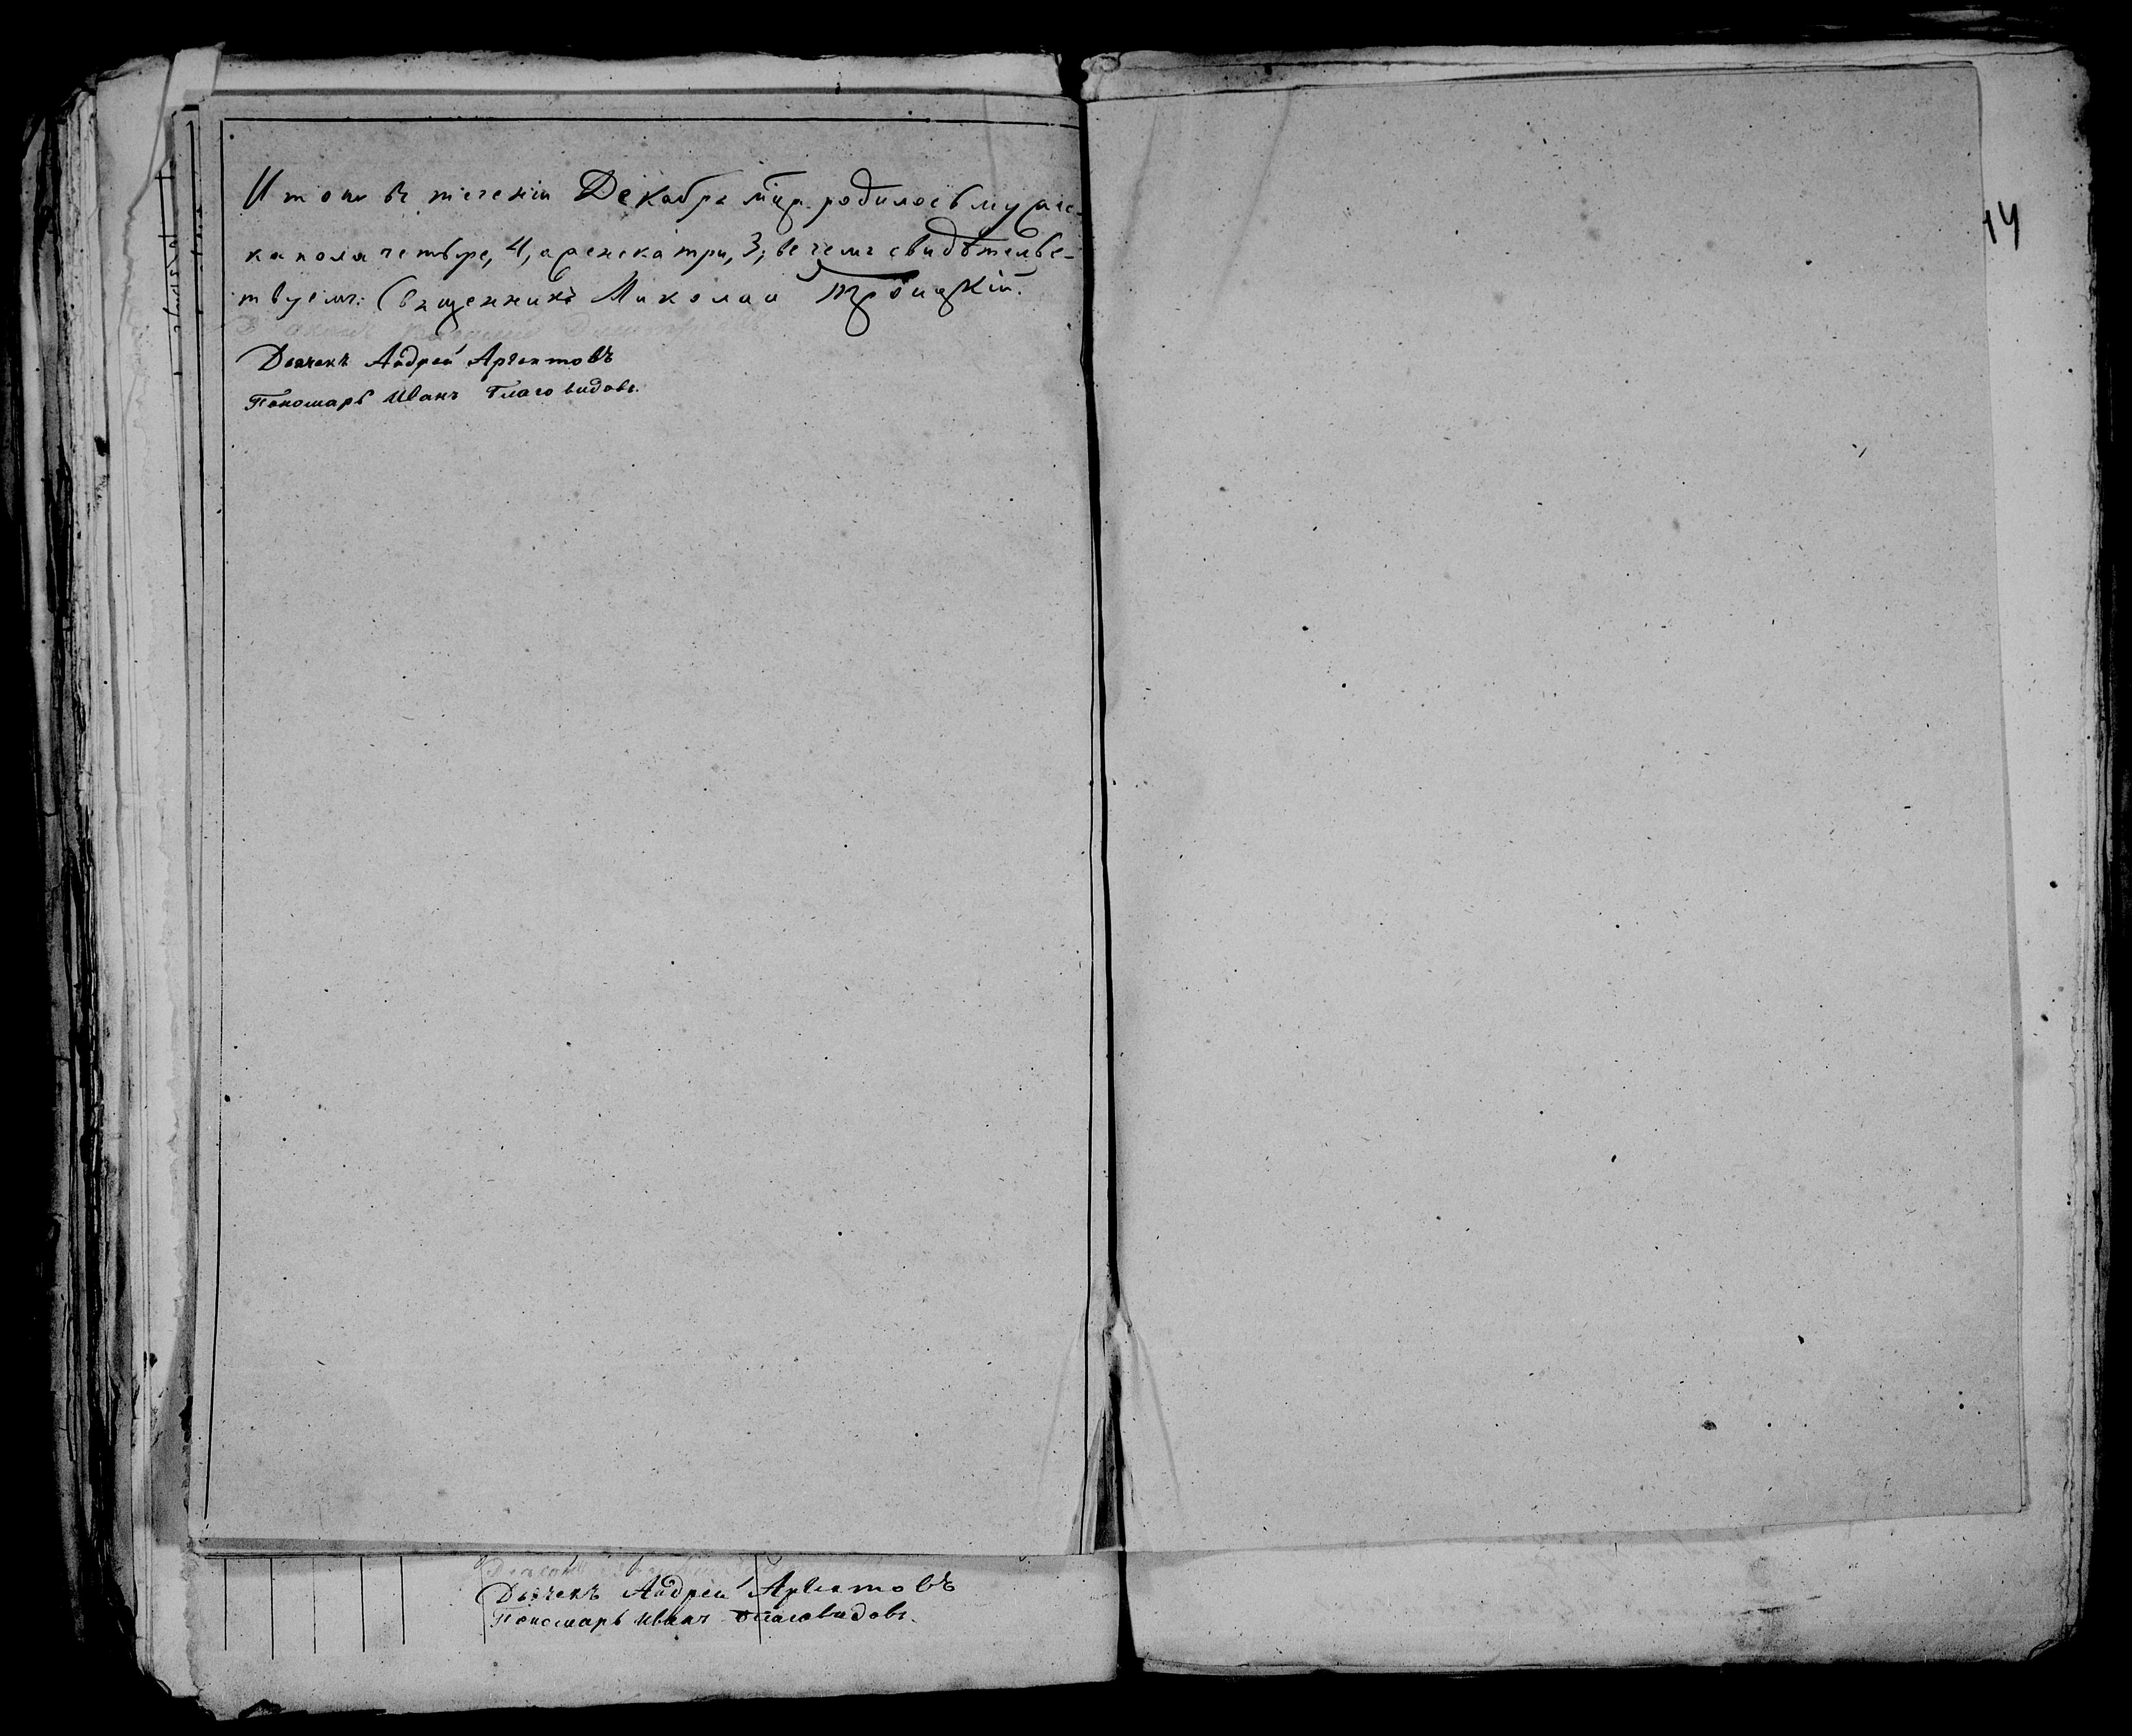 Итого въ теченіи Декабрѣ м͠ца родилось мужес-
ка пола четыре, 4, а женска три, 3; въ чемъ свидѣтельс-
твуемъ: Священникъ Николай Троицкій.
Дьячекъ Андрей Аргентовъ
Пономарь Иванъ Благовидовъ.
14
Дьячекъ Андрей Аргентовъ
Пономарь Иванъ Благовидовъ.